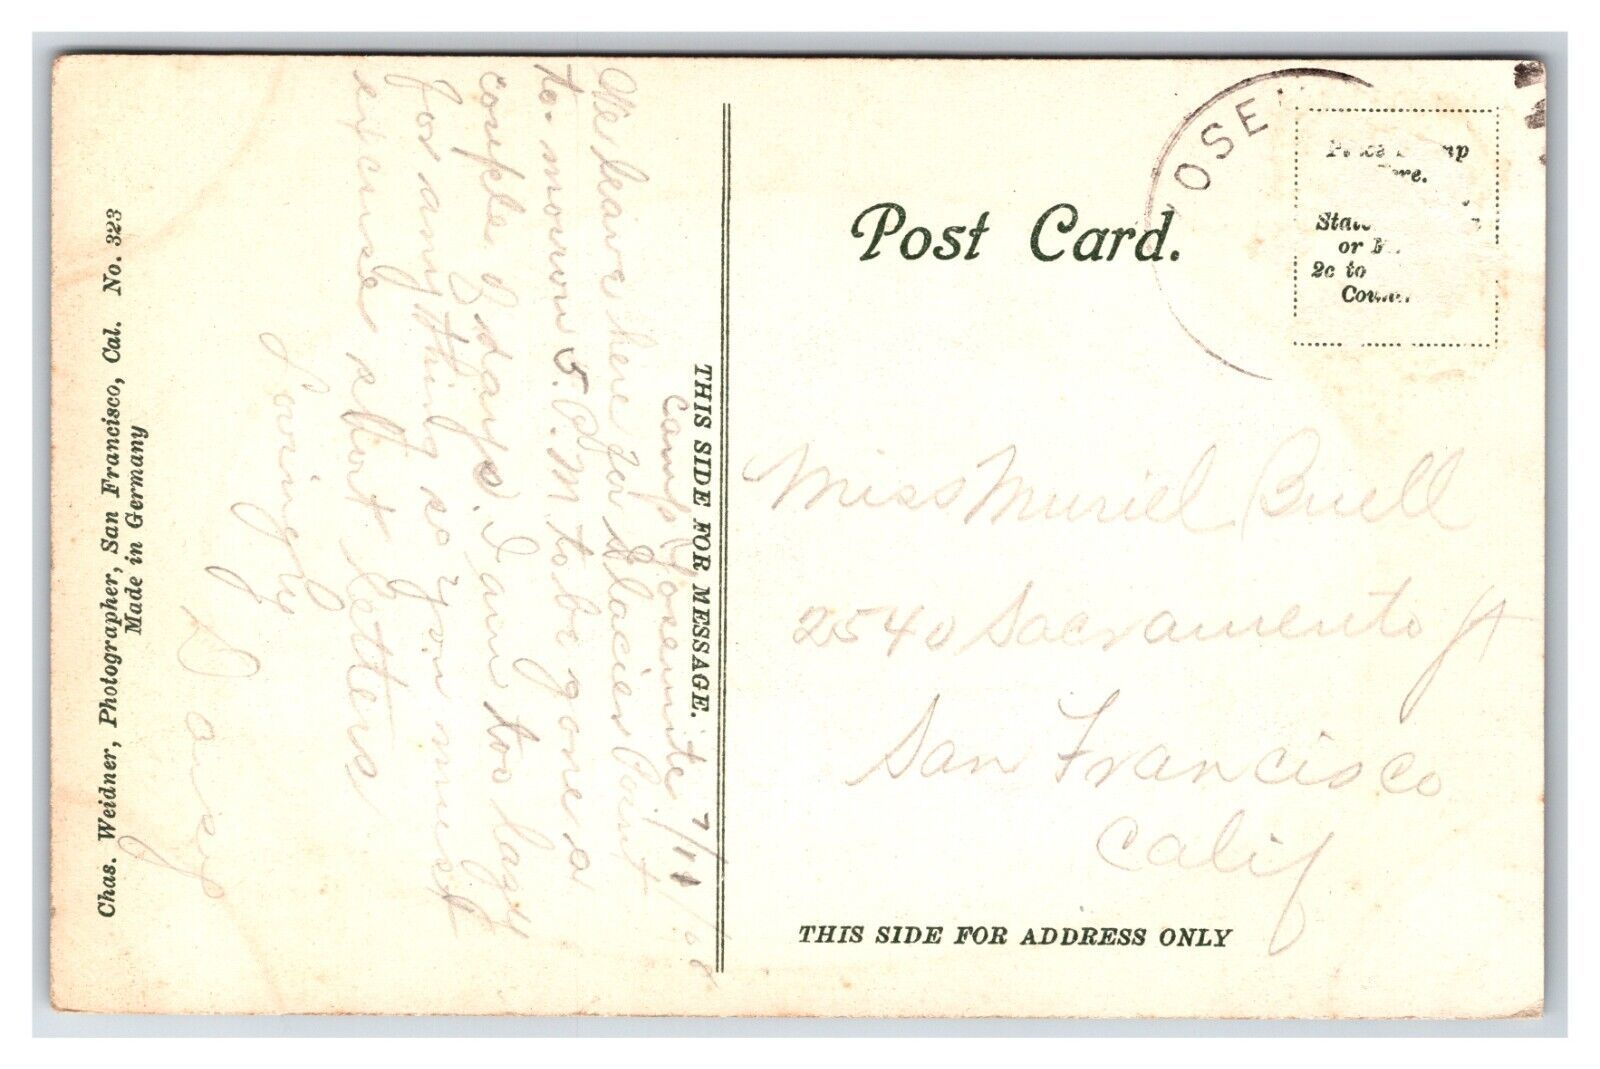 Chas. Weidner, Photographer, San Francisco, Cal. No. 323
Made in Germany
THIS SIDE FOR MESSAGE.
Camp Yosemite 7/11/08
We leave here for Glacier Point
to-morrow 5. P.M to be gone a
couple of days. I am too lazy
for anything so you must
excuse short letters
Lovingly
Daisy
OSE
Post Card.
State
or
2c to
Miss Muriel Buell
2540 Sacramento St
San Francisco
Calif
THIS SIDE FOR ADDRESS ONLY